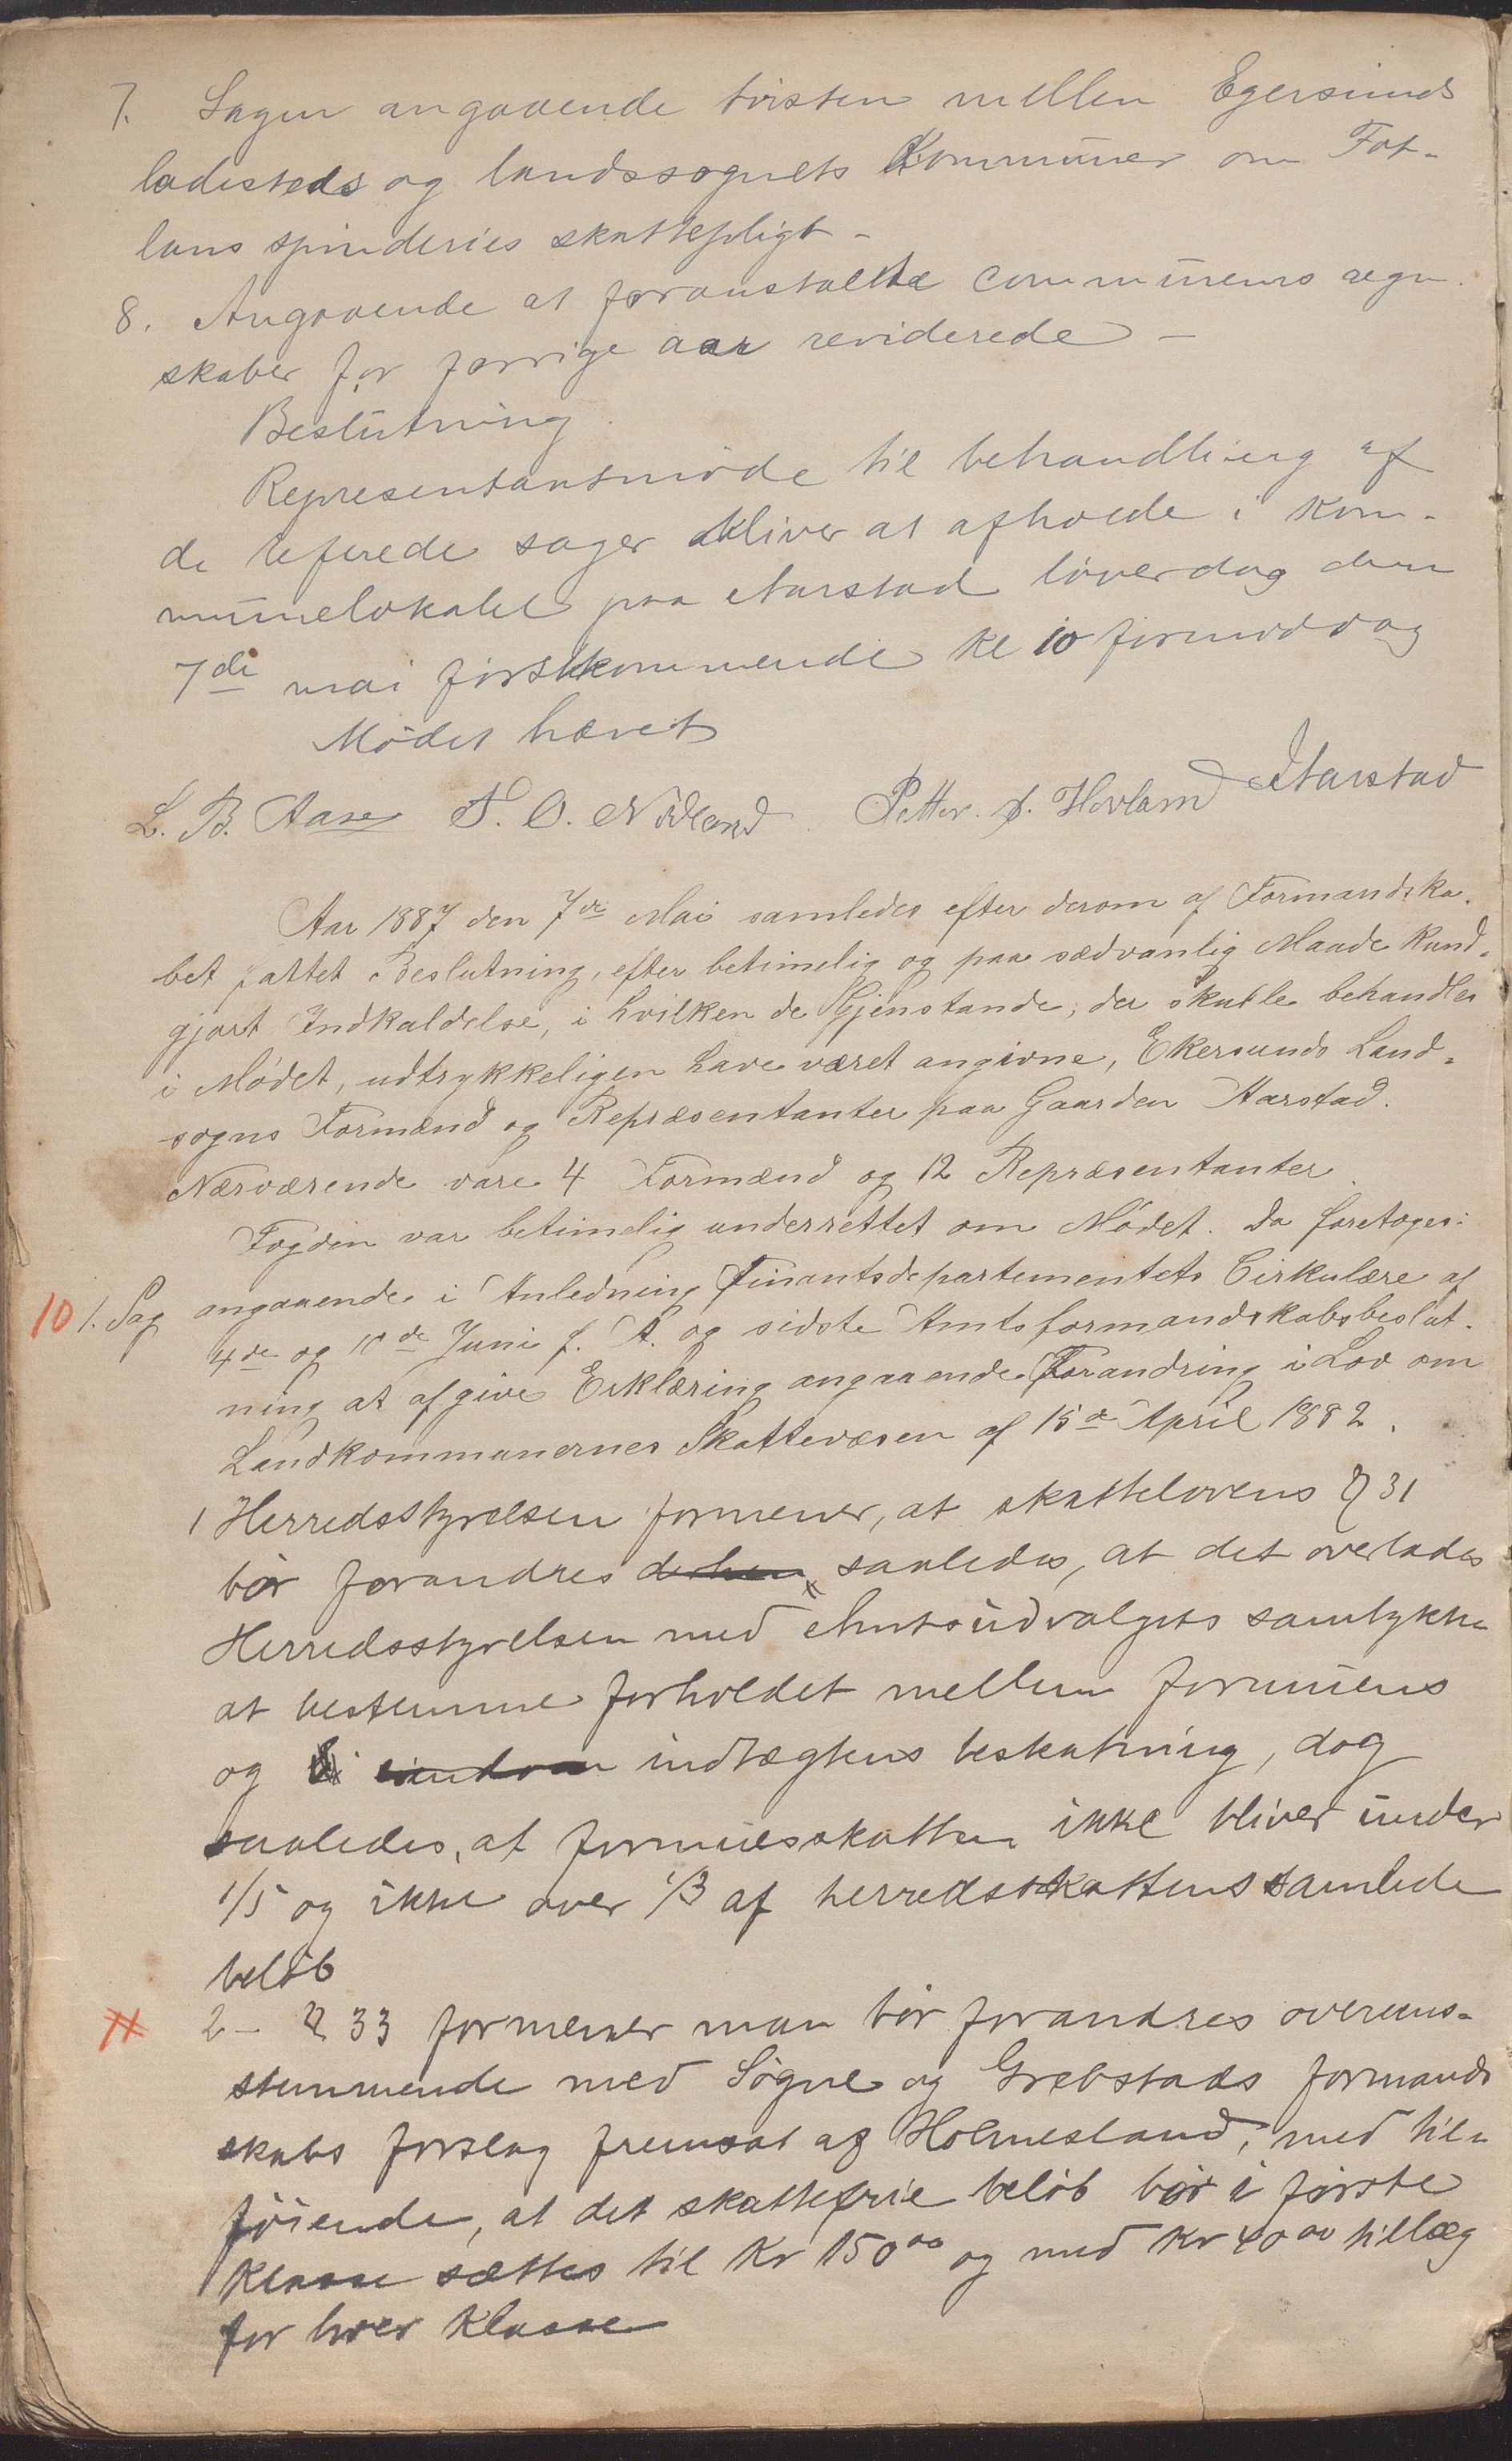 7. Sagen angaaende tvisten mellem Egersunds
ladesteds og landssognets Kommuner om Fot-
lans spinderies skattepligt -
8. Angaaende at foranstalte communens regn-
skaber for forrige aar reviderede -
Beslutning
Representantmöde til behandling af
de refererede sager bliver at afholde i kom-
munelokalet paa Aarstad löverdag den
7de mai förstkommende kl 10 formiddag
Mödet hævet
L. B. Aase T. O. Nödland Petter. S. Hovland Aarstad
Aar 1887 den 7de Mai samledes efter derom af Formandska-
bet fattet Beslutning, efter betimelig og paa sædvanlig Maade kund-
gjort Indkaldelse, i hvilken de Gjenstande, der skulle behandles
i Mødet, udtrykkeligen have været angivne, Ekersunds Land-
sogns Formænd og Repræsentanter paa Gaarden Aarstad.
Nærværende vare 4 Formænd og 12 Repræsentanter.
Fogden var betimelig underrettet om Mødet. Da foretoges:
10 1. Sag angaaende i Anledning Finantsdepartementets Cirkulære af
4de og 10de Juni f. A. og sidste Amtsformandskabsbeslut-
ning at afgive Erklæring angaaende Forandring i Lov om
Landkommunernes Skattevæsen af 15de April 1882.
1 Herredsstyrelsen formener, at skattelovens § 31
bör forandres saaledes, at det overlades
Herredsstyrelsen med Amtsudvalgets samtykke
at bestemme forholdet mellem formuens
og indtægtens beskatning, dog
saaledes, at formuesskatten ikke bliver under
1/5 og ikke over 1/3 af herredsskattens samlede
belöb
2 - § 33 formener man bör forandres overens-
stemmende med Sögne og Grebstads formand-
skabs forslag fremsat af Holmesland, med til-
föiende, at det skattefrie belöb bör i förste
Klasse sættes til Kr 150 00 og med Kr 40 00 tillæg
for hver Klasse